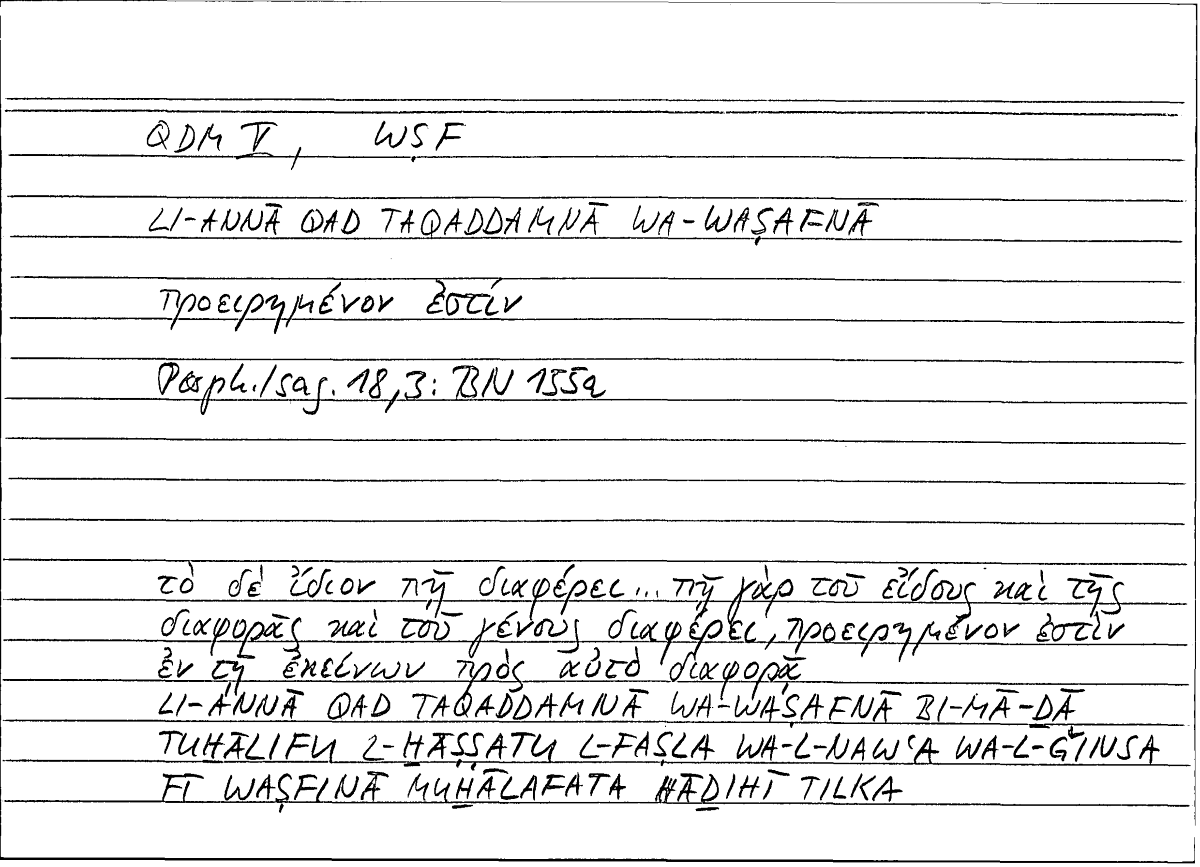 QDM V, WṢF
LI-ANNĀ QAD TAQADDAMNĀ WA-WAṢAFNĀ
προειρημένον ἐστίν
Porph. Isag. 18,3: BN 155a
τὸ δὲ ἴδιον πῇ διαφέρει... πῇ γὰρ τοῦ εἴδους καὶ τῆς
διαφορᾶς καὶ τοῦ γένους διαφέρει, προειρημένον ἐστὶν
ἐν τῇ ἐκείνων πρὸς αὐτὸ διαφορᾷ
LI-ANNĀ QAD TAQADDAMNĀ WA-WAṢAFNĀ BI-MĀ-ḎĀ
TUḪĀLIFU L-ḪĀṢṢATU L-FAṢLA WA-L-NAWʿA WA-L-ǦINSA
FĪ WAṢFINĀ MUḪĀLAFATA HĀḎIHĪ TILKA